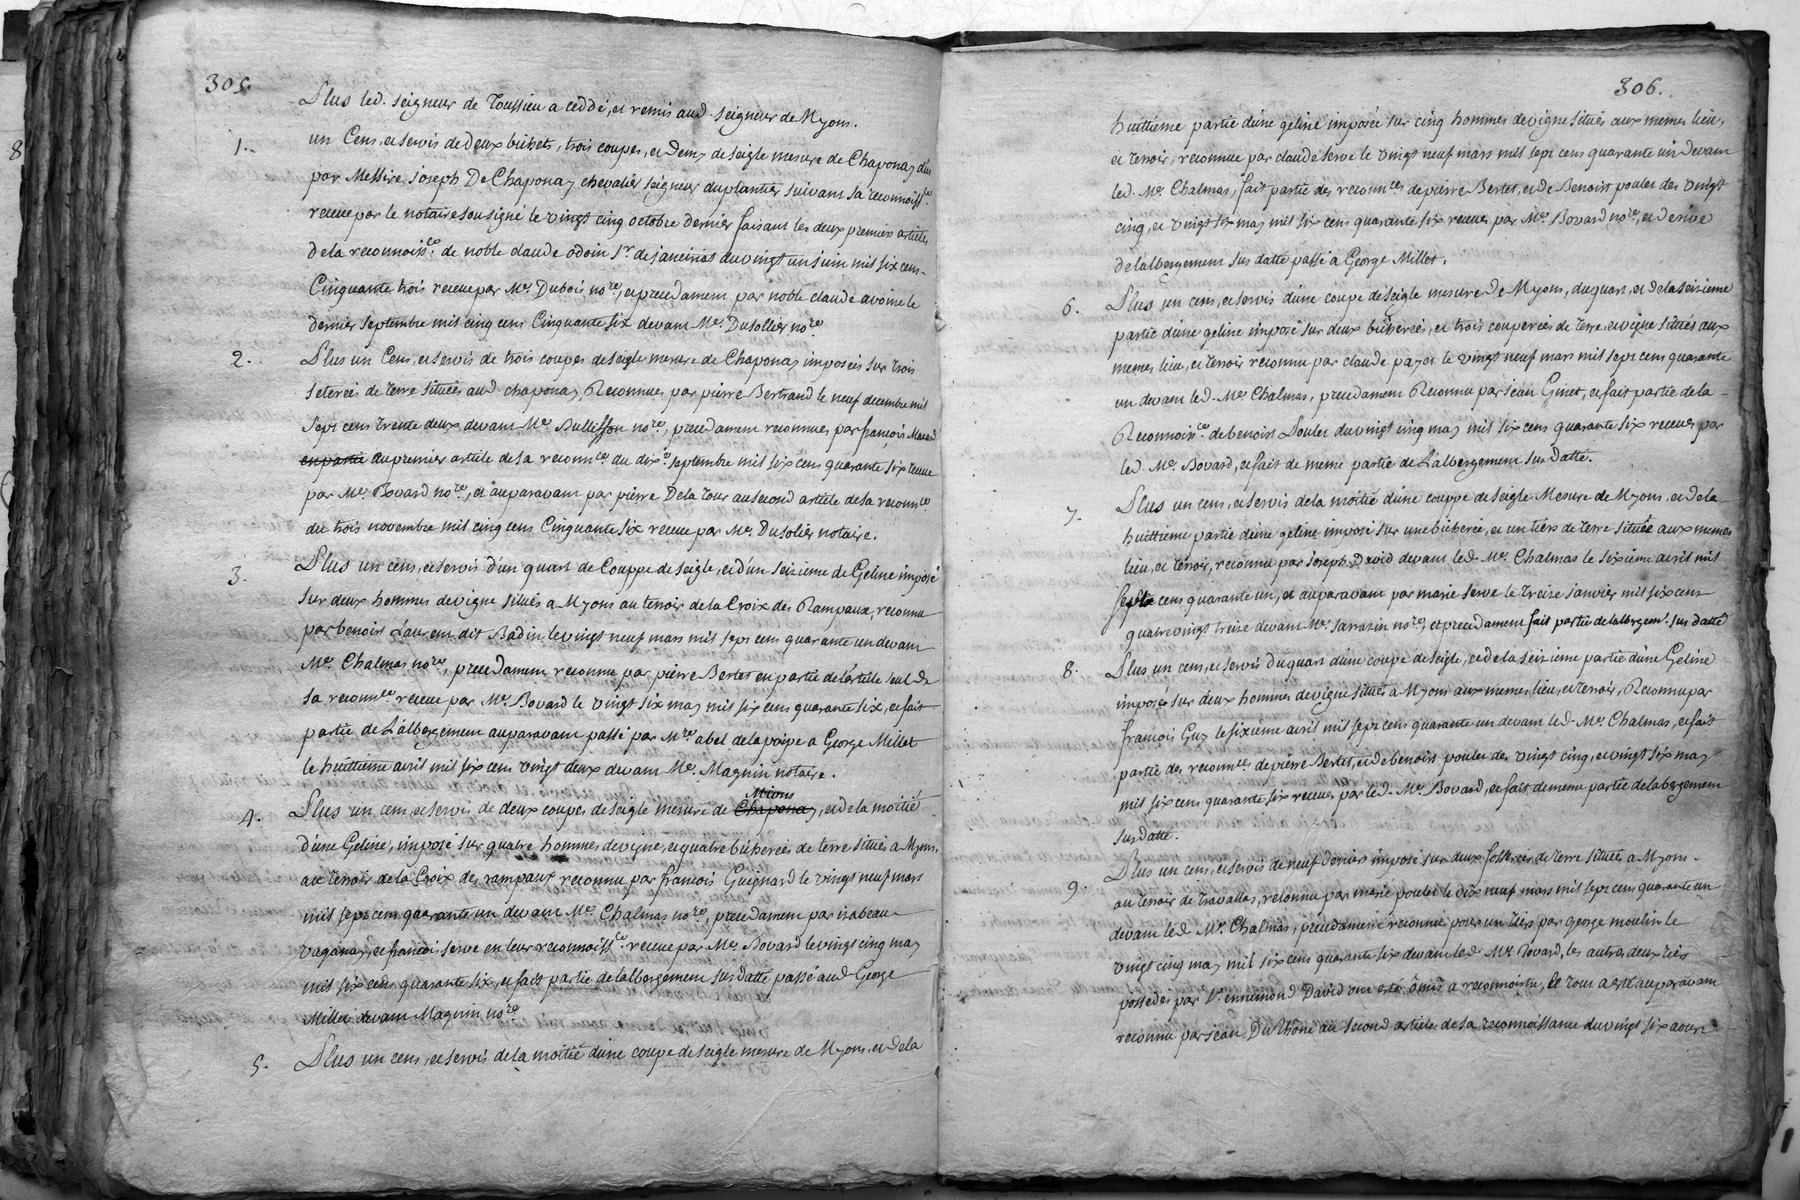 305.
Plus led. seigneur de Toussieu a ceddé, et remis aud. seigneur de Myons.
1. un Cens, et servis de deux bichets, trois coupes, et demy de seigle mesure de Chaponay dus
par Messire Joseph De Chaponay chevalier seigneur du plantier suivant sa reconnoiss.ce
receue par le notaire sousigné le vingt cinq octobre dernier faisant les deux premiers articles
de la reconnoiss.ce de noble claude odoin s.r de janeiriat du vingt un juin mil six cens
Cinquante trois receue par M.e Dubois no.re, et precedament par noble claude avoine le
dernier septembre mil cinq cens Cinquante six devant M.e Dusollier no.re
2. Plus un Cens, et servis de trois coupes de seigle mesure de Chaponay imposées sur trois
seterées de terre situées aud. chaponay, Reconnues par pierre Bertrand le neuf decembre mil
sept cens trente deux devant M.e Bullisson no.re, precedament reconnues par françois Morard
en partie au premier article de sa reconn.ce du dix.e septembre mil six cens quarante six receue
par M.e Bovard no.re, et auparavant par pierre Dela tour au second article de sa reconn.ce
du trois novembre mil cinq cens Cinquante six receue par M.e Dusolier notaire.
3. Plus un cens, et servis d'un quart de Couppe de seigle, et d'un seizieme de Geline imposé
sur deux hommes de vigne situés a Myons au tenoir de la Croix des Rampaux, reconnu
par benoist Laurent dit Badin le vingt neuf mars mil sept cens quarante un devant
M.e Chalmas no.re, precedament reconnu par pierre Bertet en partie de l'article seul de
sa reconn.ce receue par M.e Bovard le vingt six may mil six cens quarante six, et fait
partie de L'albergement auparavant passé par M.re abel de la poipe a George Millet
le huittieme avril mil six cens vingt deux devant M.e Magnin notaire.
4. Plus un cens, et servis de deux coupes de seigle mesure de Chaponay Mions, et de la moitié
d'une Geline, imposé sur quatre hommes de vigne, et quatre bicherées de terre situés a Myons,
au tenoir de la Croix des rampaux reconnu par francois Guignard le vingt neuf mars
mil sept cens quarante un devant M.e Chalmas no.re, precedament par isabeau
vaganay, et francois serve en leur reconnoiss.ce receue par M.e Bovard le vingt cinq may
mil six cens quarante six, et fait partie de lalbergement sus datté passé aud. George
Millet devant Magnin no.re
5. Plus un cens, et servis de la moitié d'une coupe de seigle mesure de Myons, et de la
306.
huittieme partie d'une geline imposée sur cinq hommes de vigne situés aux memes lieu,
et tenoir, reconnue par claude serve le vingt neuf mars mil sept cens quarante un devant
led. M.e Chalmas, fait partie des reconn.ces de pierre Bertet, et de Benoist poulet des vingt
cinq, et vingt six may mil six cens quarante six receues par M.e Bovard no.re, et derive
de lalbergement sus datté passé a George Millet.
6. Plus un cens, et servis d'une coupe de seigle mesure de Myons, du quart, et de la seizieme
partie d'une geline imposé sur deux bicherées, et trois couperées de terre, et vigne situés aux
memes lieu, et tenoir reconnu par claude payet le vingt neuf mars mil sept cens quarante
un devant led. M.e Chalmas, precedament Reconnu par jean Ginet, et fait partie de la
Reconnoiss.ce de benoist Poulet du vingt cinq may mil six cens quarante six receues par
led. M.e Bovard, et fait de meme partie de L'albergement sus datté.
7. Plus un cens, et servis de la moitié d'une couppe de seigle Mesure de Myons, et de la
huittieme partie d'une geline imposé sur une bicherée, et un tiers de terre située aux memes
lieu, et tenoir, reconnu par joseph David devant led. M.e Chalmas le sixieme avril mil
sept cens quarante un, et auparavant par marie serve le treize janvier mil six cens
quatre vingt treize devant M.e Sarrazin no.re, et precedament fait partie de lalbergem.t sus datté
8. Plus un cens, et servis du quart d'une coupe de seigle, et de la seizieme partie d'une Geline
imposés sur deux hommes de vigne situés a Myons aux memes lieu, et tenoir, Reconnu par
françois Guy le sixieme avril mil sept cens quarante un devant led. M.e Chalmas, et fait
partie des reconn.ces de pierre Bertet, et de benoist poulet des vingt cinq, et vingt six may
mil six cens quarante six receues par led. M.e Bovard, et fait de meme partie de labergement
sus datté.
9. Plus un cens, et servis de neuf deniers imposé sur deux fosserées de terre situés a Myons
au tenoir de travallas, reconnu par marie poulet le dix neuf mars mil sept cens quarante un
devant led. M.e Chalmas, precedament reconnu pour un tiers par george moulin le
vingt cinq may mil six cens quarante six devant led. M.e Bovard, les autres deux tiers
possedés par s.r ennemond David ont esté omis a reconnoistre, Le tout a esté auparavant
reconnu par jean Du Rhône au second article de sa reconnoissance du vingt six aoust